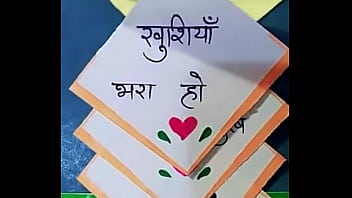 खुशियाँ
भरा हो